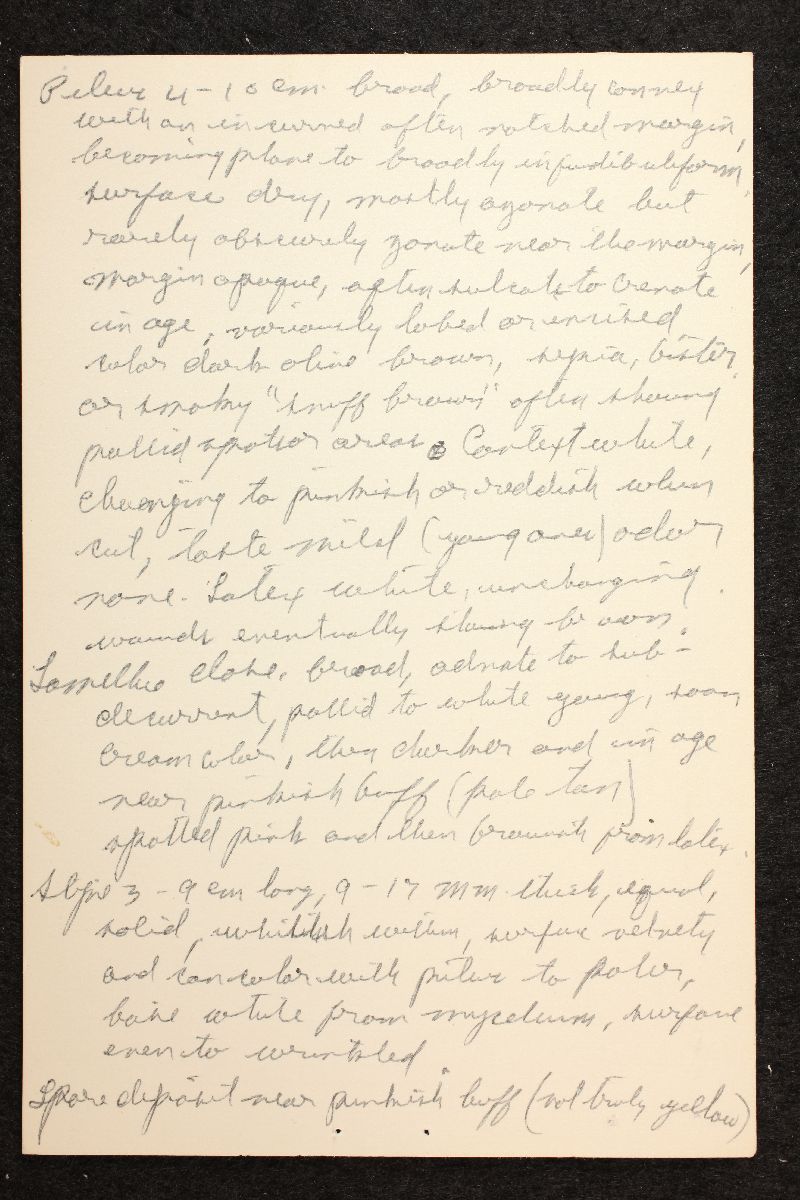 Pileus 4-10 cm broad, broadly convex
with an incurved often notched margin,
becoming plane to broadly infundibuliform,
surface dry, mostly azonate but
rarely obscurely zonate near the margin,
margin opaque, often sulcate to crenate
in age, variously lobed or incised
color dark olive brown, sepia, bister
or smoky "snuff brown" often showing
pallid spots or areas. Context white,
changing to pinkish or reddish when
cut, taste mild (young ones) odor
none. Latex white, unchanging.
wounds eventually showing brown.
Lamellae close, broad, adnate to sub-
decurrent, pallid to white young, soon
cream color, then darker and in age
near pinkish buff (pale tan)
spotted pink and then brownish from latex.
Stipe 3-9 cm long, 9-17 mm thick, equal,
solid, whitish within, surface velvety
and concolor with pileus to paler,
base white from mycelium, surface
even to wrinkled.
Spore deposit near pinkish buff (not truly yellow)